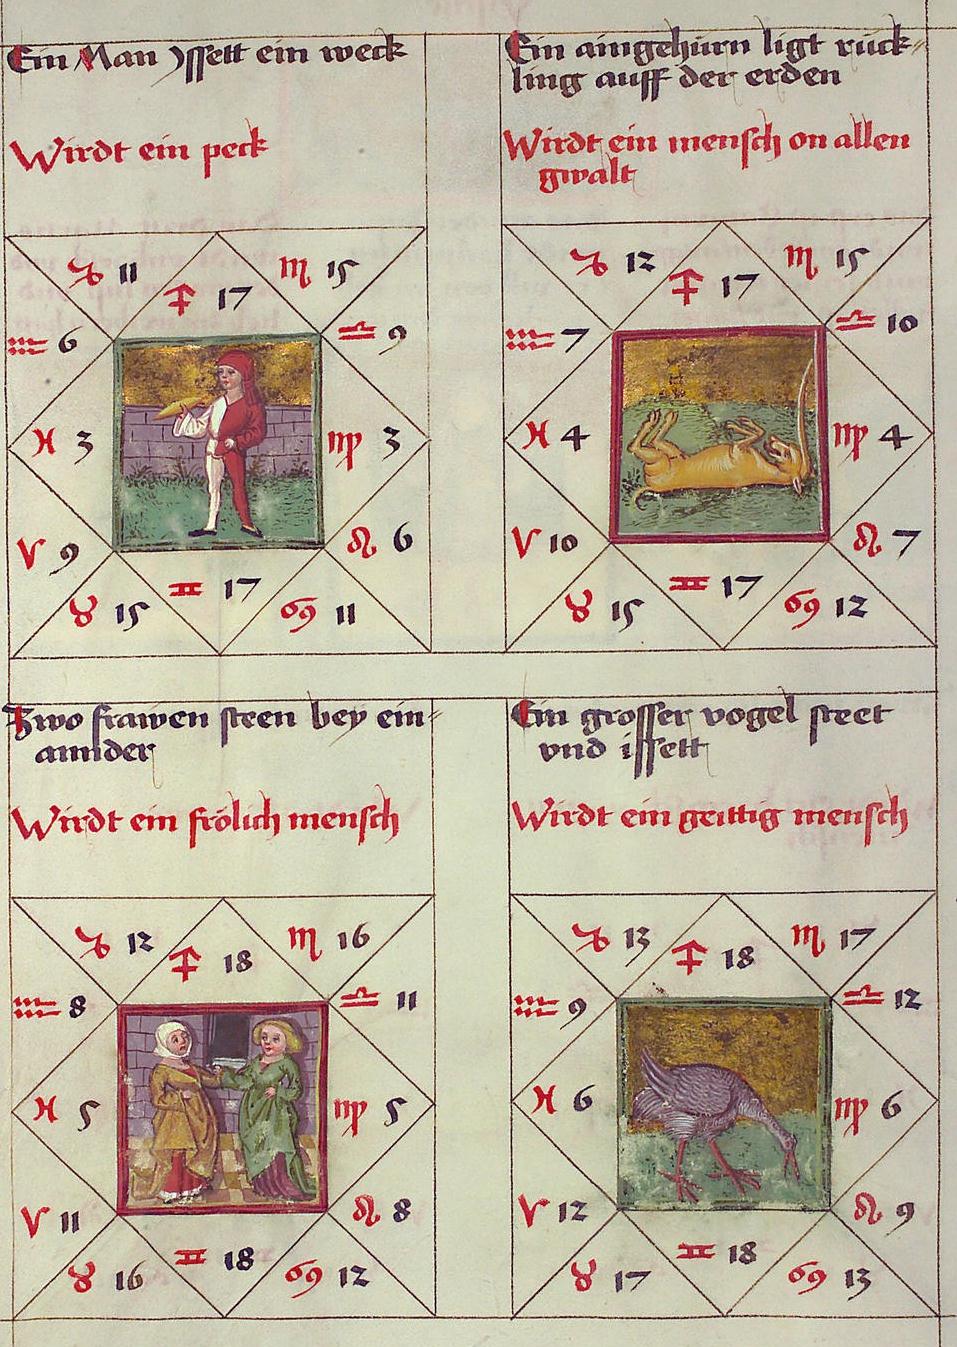 Ein Man yssett ein weck
Wirdt ein peck
♑ 11
♐ 17
♏ 15
♒ 6
♎ 9
♓ 3
♍ 3
♈ 9
♌ 6
♉ 15
♊ 17
♋ 11
Ein aingehürn ligt rück-
ling auff der erden
Wirdt ein mensch on allen
gwalt
♑ 12
♐ 17
♏ 15
♒ 7
♎ 10
♓ 4
♍ 4
♈ 10
♌ 7
♉ 15
♊ 17
♋ 12
Zwo frawen steen bey ein-
annder
Wirdt ein frölich mensch
♑ 12
♐ 18
♏ 16
♒ 8
♎ 11
♓ 5
♍ 5
♈ 11
♌ 8
♉ 16
♊ 18
♋ 12
Ein grosser vogel steet
vnd issett
Wirdt ein geittig mensch
♑ 13
♐ 18
♏ 17
♒ 9
♎ 12
♓ 6
♍ 6
♈ 12
♌ 9
♉ 17
♊ 18
♋ 13